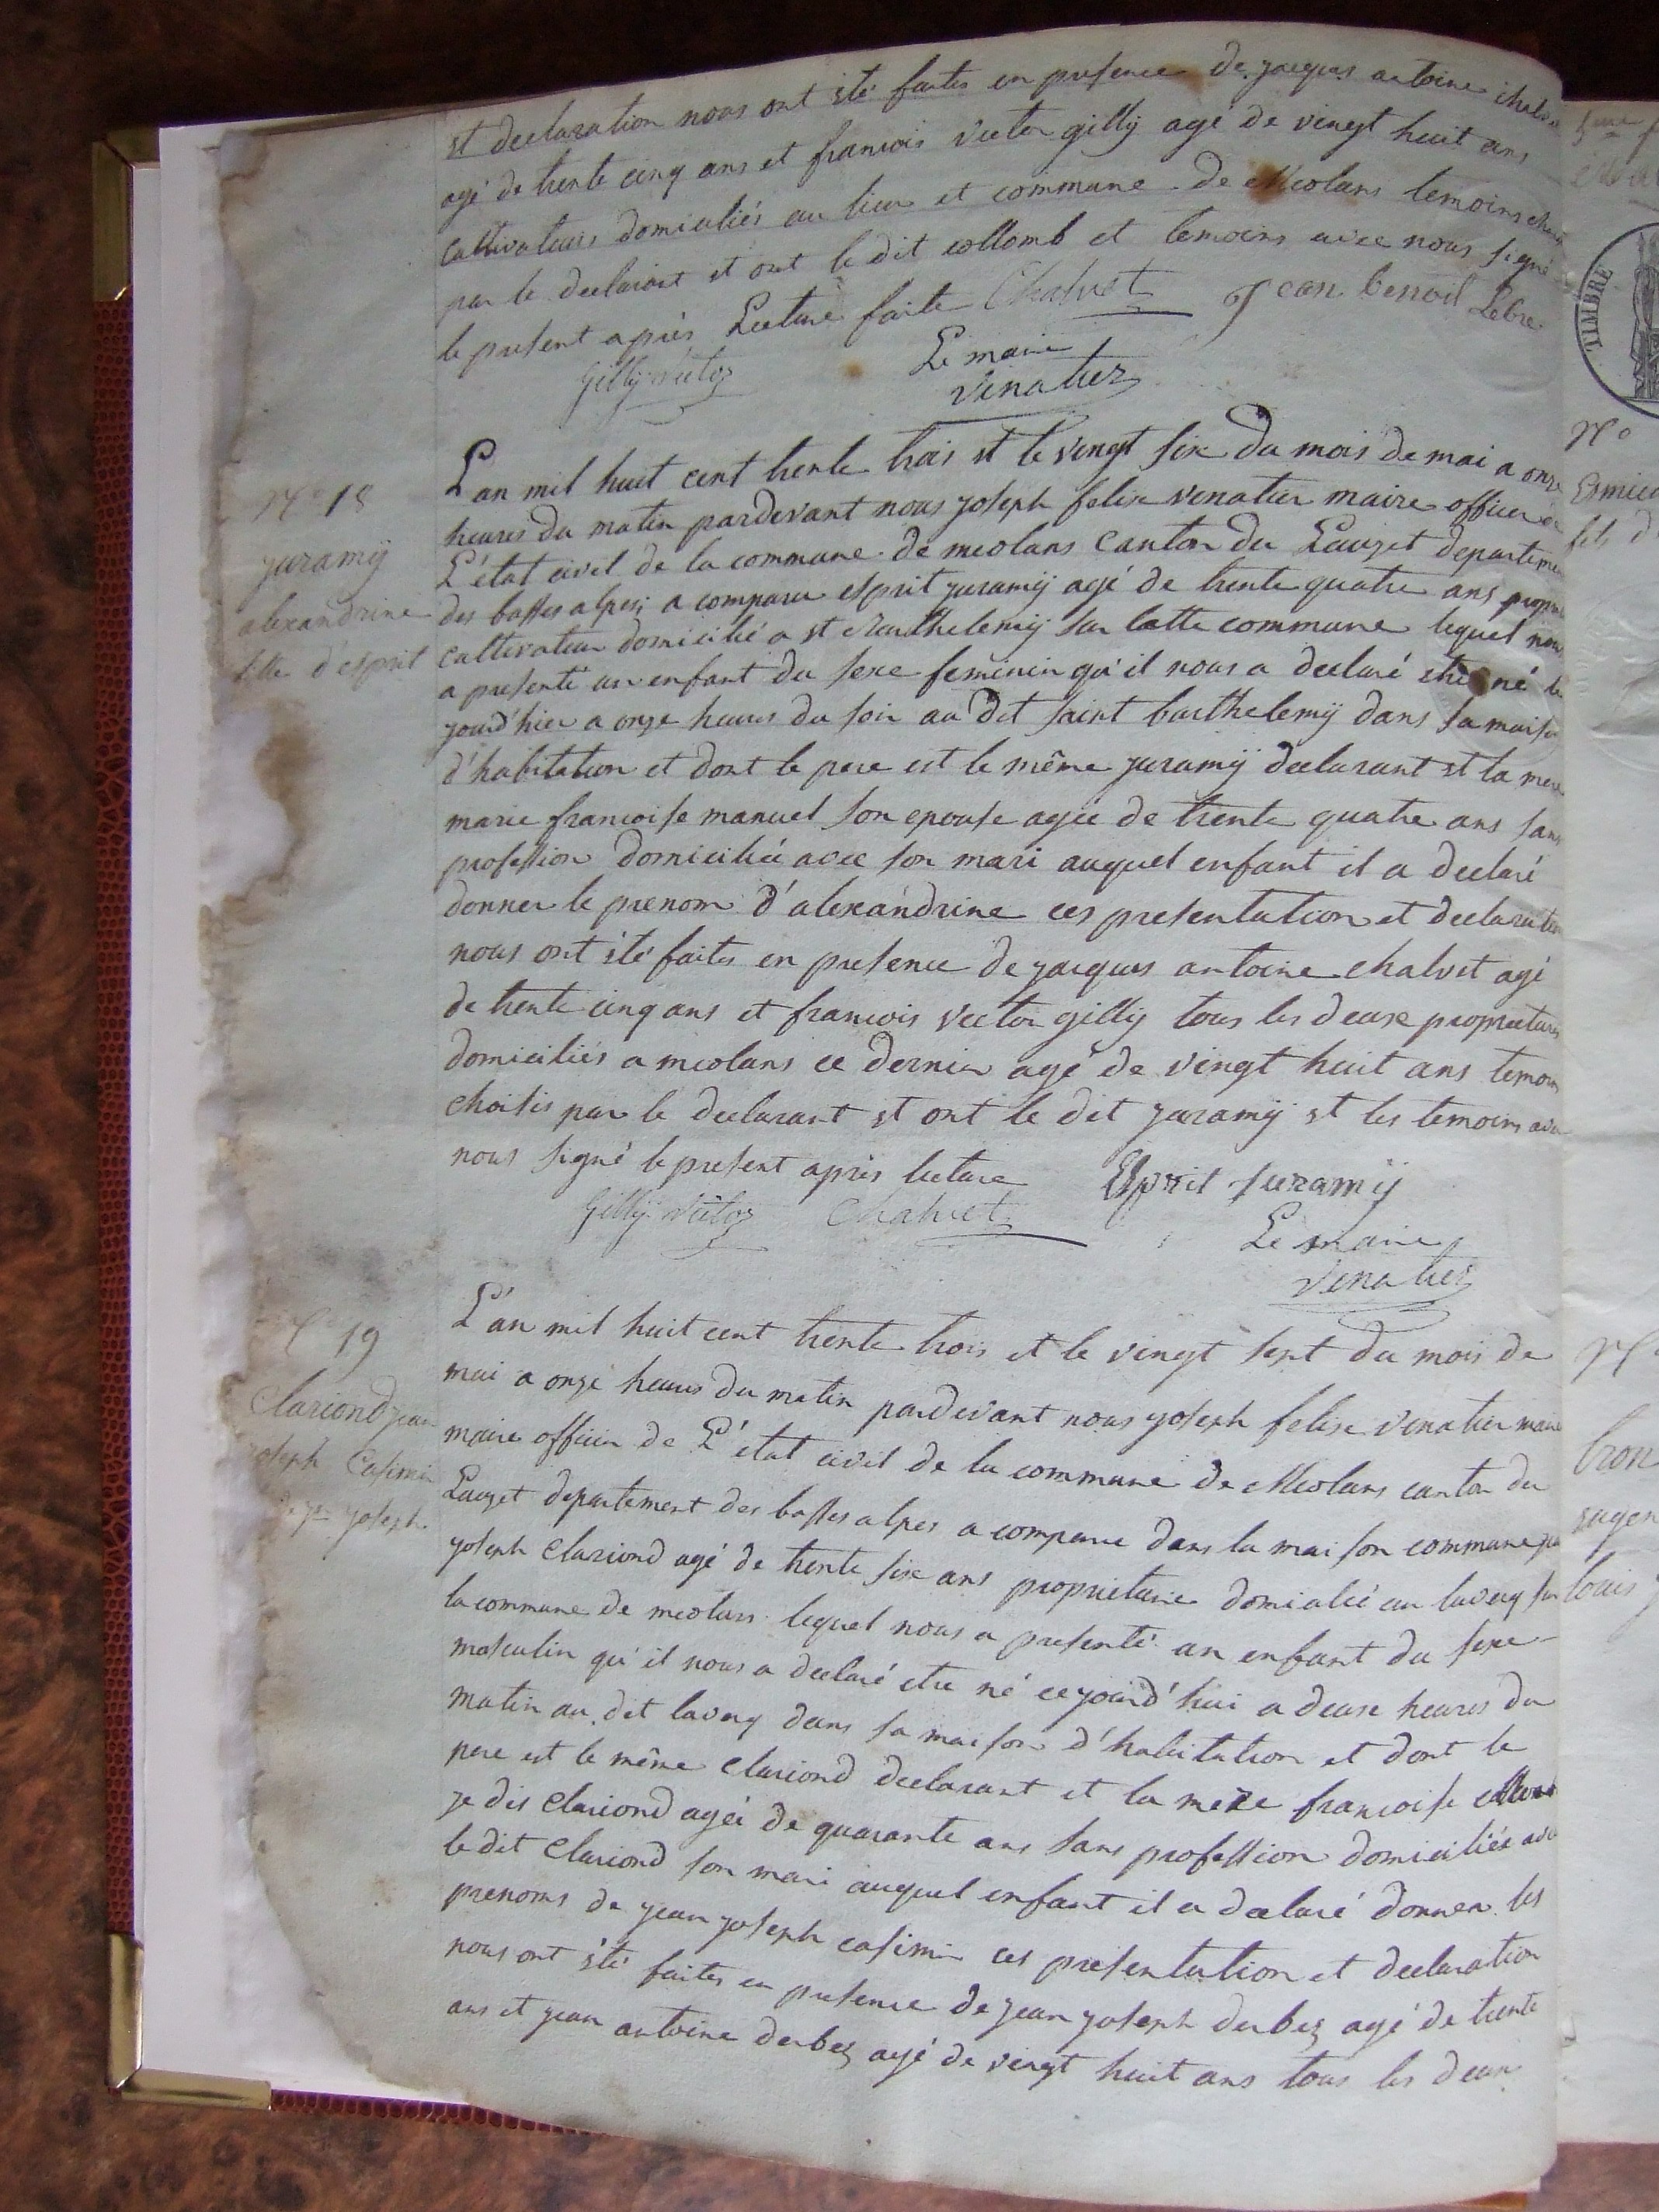 et declaration nous ont été faites en presence de jacques antoine chalvet
agé de trente cinq ans et francois victor gilly agé de vingt huit ans
cultivateurs domiciliés au lieu et commune de Meolans temoins choisis
par le declarant et ont le dit collomb et temoins avec nous signé
le present après Lecture faite Chalvet Jean benoit Lebre
Gilly victor Le maire
Venatier
N° 18
juramÿ
alexandrine
fille d'esprit
L'an mil huit cent trente trois et le vingt six du mois de mai a onze
heures du matin pardevant nous joseph felix venatier maire officier de
L'état civil de la commune de meolans Canton du Lauzet departement
des basses alpes, a comparu esprit juramÿ agé de trente quatre ans
cultivateur domicilié a st Barthelemÿ sur latte commune lequel nous
a presenté un enfant du sexe feminin qu'il nous a declaré etre né le
jourd'hier a onze heures du soir au dit saint barthelemÿ dans sa maison
d'habitation et dont le pere est le même juramÿ declarant et la mere
marie francoise manuel son epouse agée de trente quatre ans sans
profession domiciliée avec son mari auquel enfant il a declaré
donner le prenom d'alexandrine ces presentation et declaration
nous ont été faites en presence de jacques antoine chalvet agé
de trente cinq ans et francois victor gilly tous les deux proprietaires
domiciliés a meolans ce dernier agé de vingt huit ans temoins
choisis par le declarant et ont le dit juramÿ et les temoins avec
nous signé le present après lecture Esprit juramÿ
Gilly victor Chalvet Le maire
Venatier
19
Clariond jean
joseph Casimir
joseph
L'an mil huit cent trente trois et le vingt sept du mois de
mai a onze heures du matin pardevant nous joseph felix venatier maire
maire officier de L'état civil de la commune de Meolans canton du
Lauzet departement des basses alpes a comparu dans la maison commune jean
joseph Clariond agé de trente six ans proprietaire domicilié au laverq sur
la commune de meolans lequel nous a presenté un enfant du sexe
masculin qu'il nous a declaré etre né cejourd'hui a deux heures du
matin au dit laverq dans sa maison d'habitation et dont le
pere est le même Clariond declarant et la mere francoise
je dis Clariond agée de quarante ans sans profession domiciliée avec
le dit Clariond son mari auquel enfant il a declaré donner les
prenoms de jean joseph casimir ces presentation et declaration
nous ont été faites en presence de jean joseph derbez agé de trente
ans et jean antoine derbez agé de vingt huit ans tous les deux
TIMBRE
N°
louis